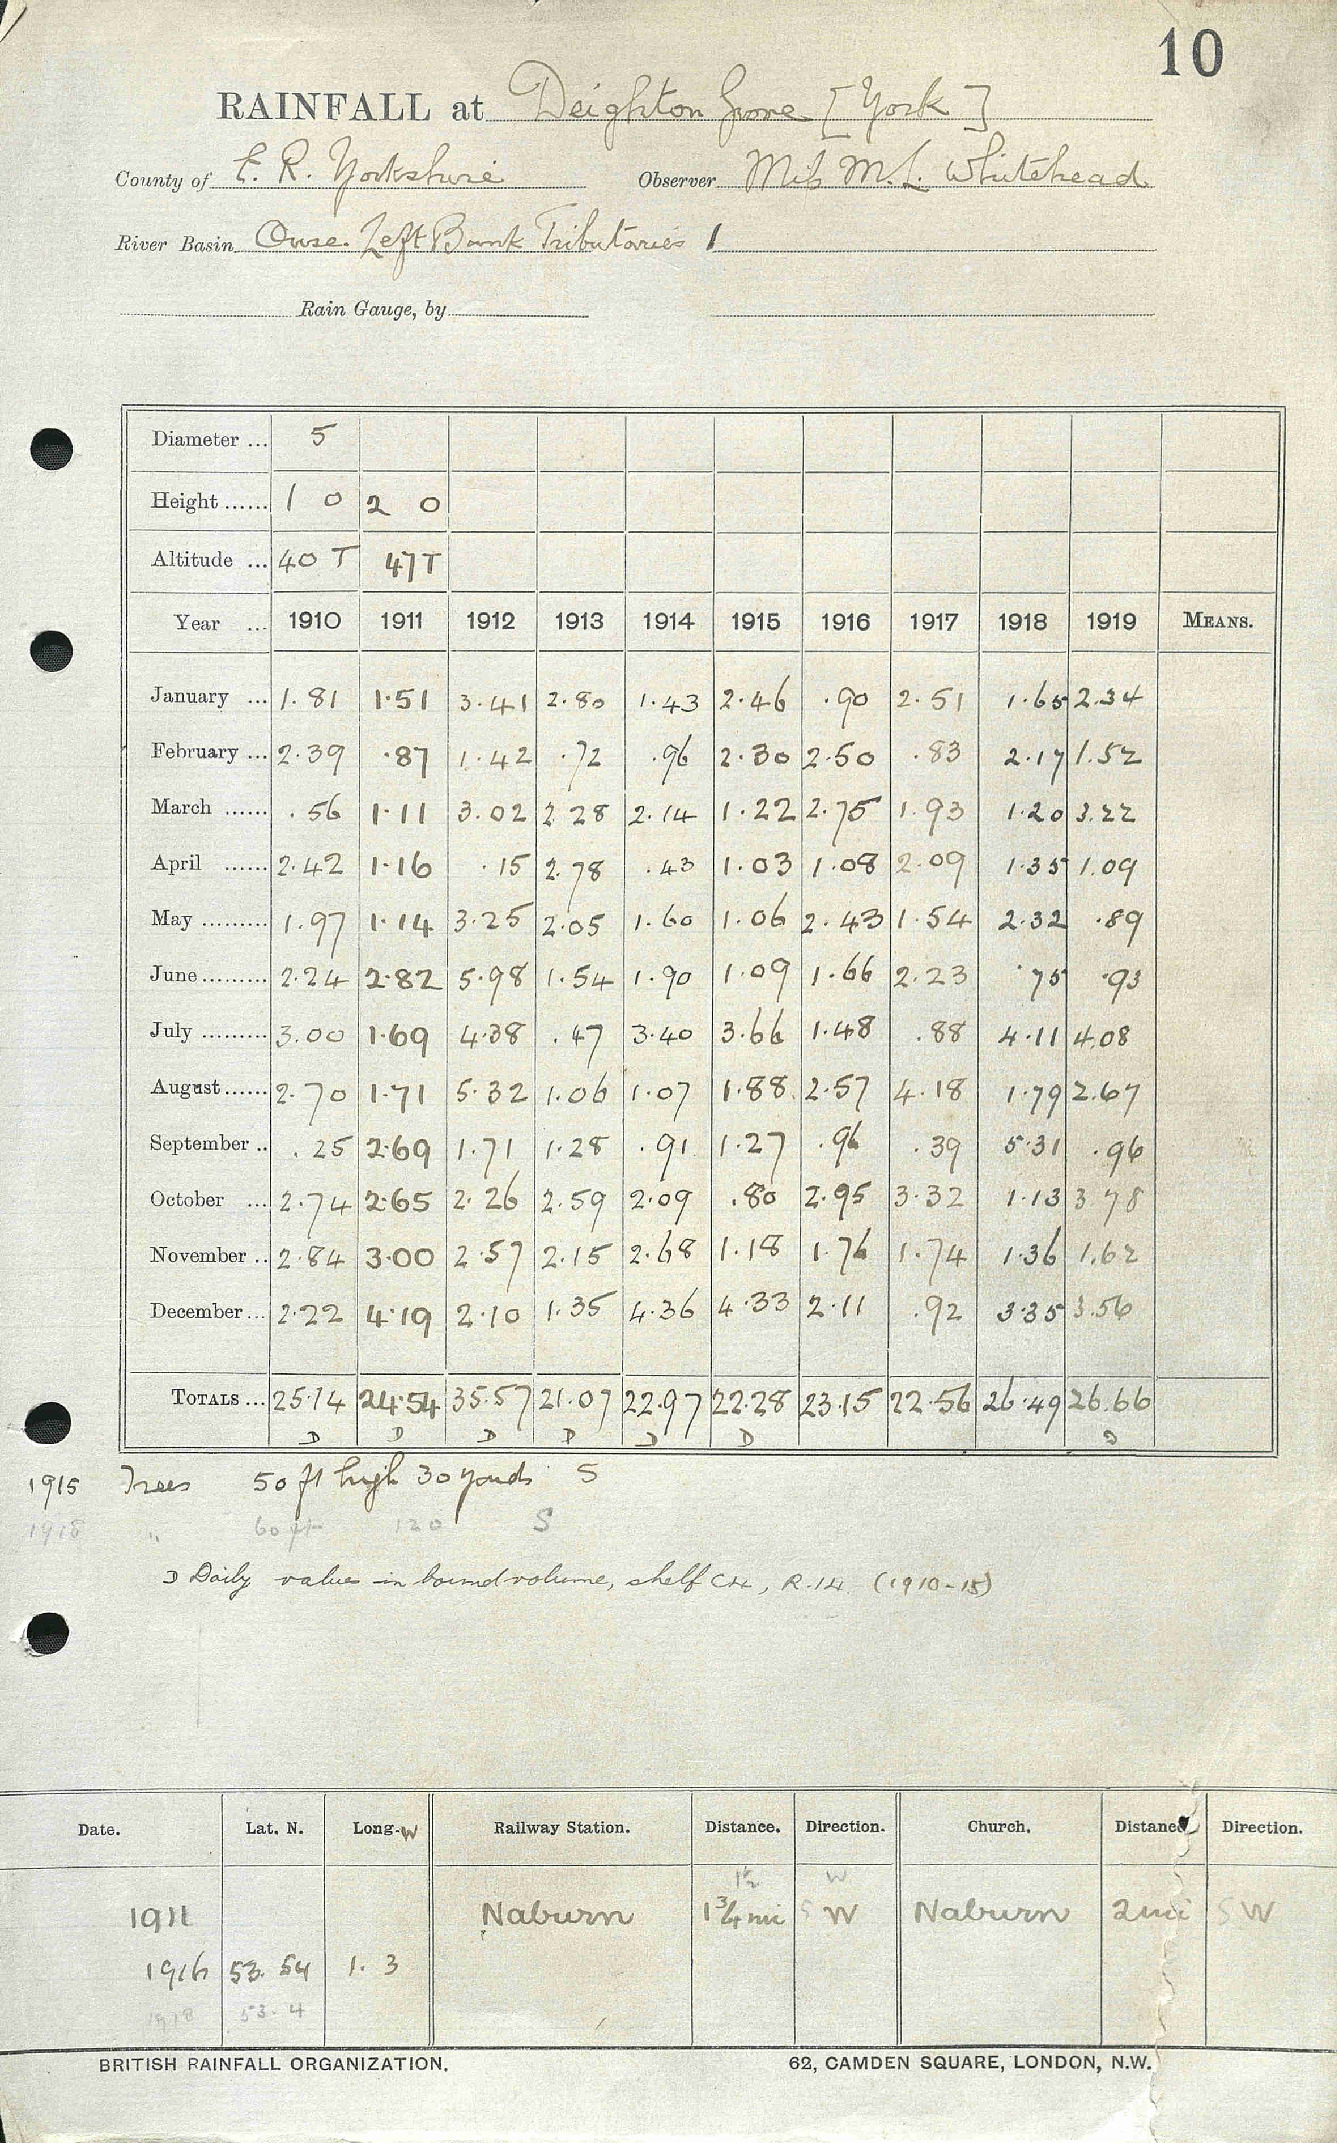 10
RAINFALL at Deighton Grove [York]
County of E. R. Yorkshire Observer Miss M. L. Whitehead
River Basin Ouse. Left Bank Tributaries 1
Rain Gauge, by
Diameter ... 5
Height ...... 1 0 2 0
Altitude ... 40 T 47T
Year ... 1910 1911 1912 1913 1914 1915 1916 1917 1918 1919 MEANS.
January ... 1.81 1.51 3.41 2.80 1.43 2.46 .90 2.51 1.65 2.34
February ... 2.39 .87 1.42 .72 .96 2.30 2.50 .83 2.17 1.52
March ...... .56 1.11 3.02 2.28 2.14 1.22 2.75 1.93 1.20 3.22
April ...... 2.42 1.16 .15 2.78 .43 1.03 1.08 2.09 1.35 1.09
May ......... 1.97 1.14 3.25 2.05 1.60 1.06 2.43 1.54 2.32 .89
June ......... 2.24 2.82 5.98 1.54 1.90 1.09 1.66 2.23 .75 .93
July ......... 3.00 1.69 4.38 .47 3.40 3.66 1.48 .88 4.11 4.08
August ...... 2.70 1.71 5.32 1.06 1.07 1.88 2.57 4.18 1.79 2.67
September .. .25 2.69 1.71 1.28 .91 1.27 .96 .39 5.31 .96
October ... 2.74 2.65 2.26 2.59 2.09 .80 2.95 3.32 1.13 3.78
November .. 2.84 3.00 2.57 2.15 2.68 1.18 1.76 1.74 1.36 1.62
December ... 2.22 4.19 2.10 1.35 4.36 4.33 2.11 .92 3.35 3.56
TOTALS ... 25.14 24.54 35.57 21.07 22.97 22.28 23.15 22.56 26.49 26.66
D D D D D D D
1915 Trees 50 ft high 30 yards S
1918 " 60 ft 120 S
D Daily values in bound volume, shelf C4, R.14. (1910-15)
Date. Lat. N. Long. W Railway Station. Distance. Direction. Church. Distance Direction.
1½ W
1911 Naburn 1¾ mi S W Naburn 2 mi S W
1916 53. 54 1. 3
1918 53. 4
BRITISH RAINFALL ORGANIZATION. 62, CAMDEN SQUARE, LONDON, N.W.